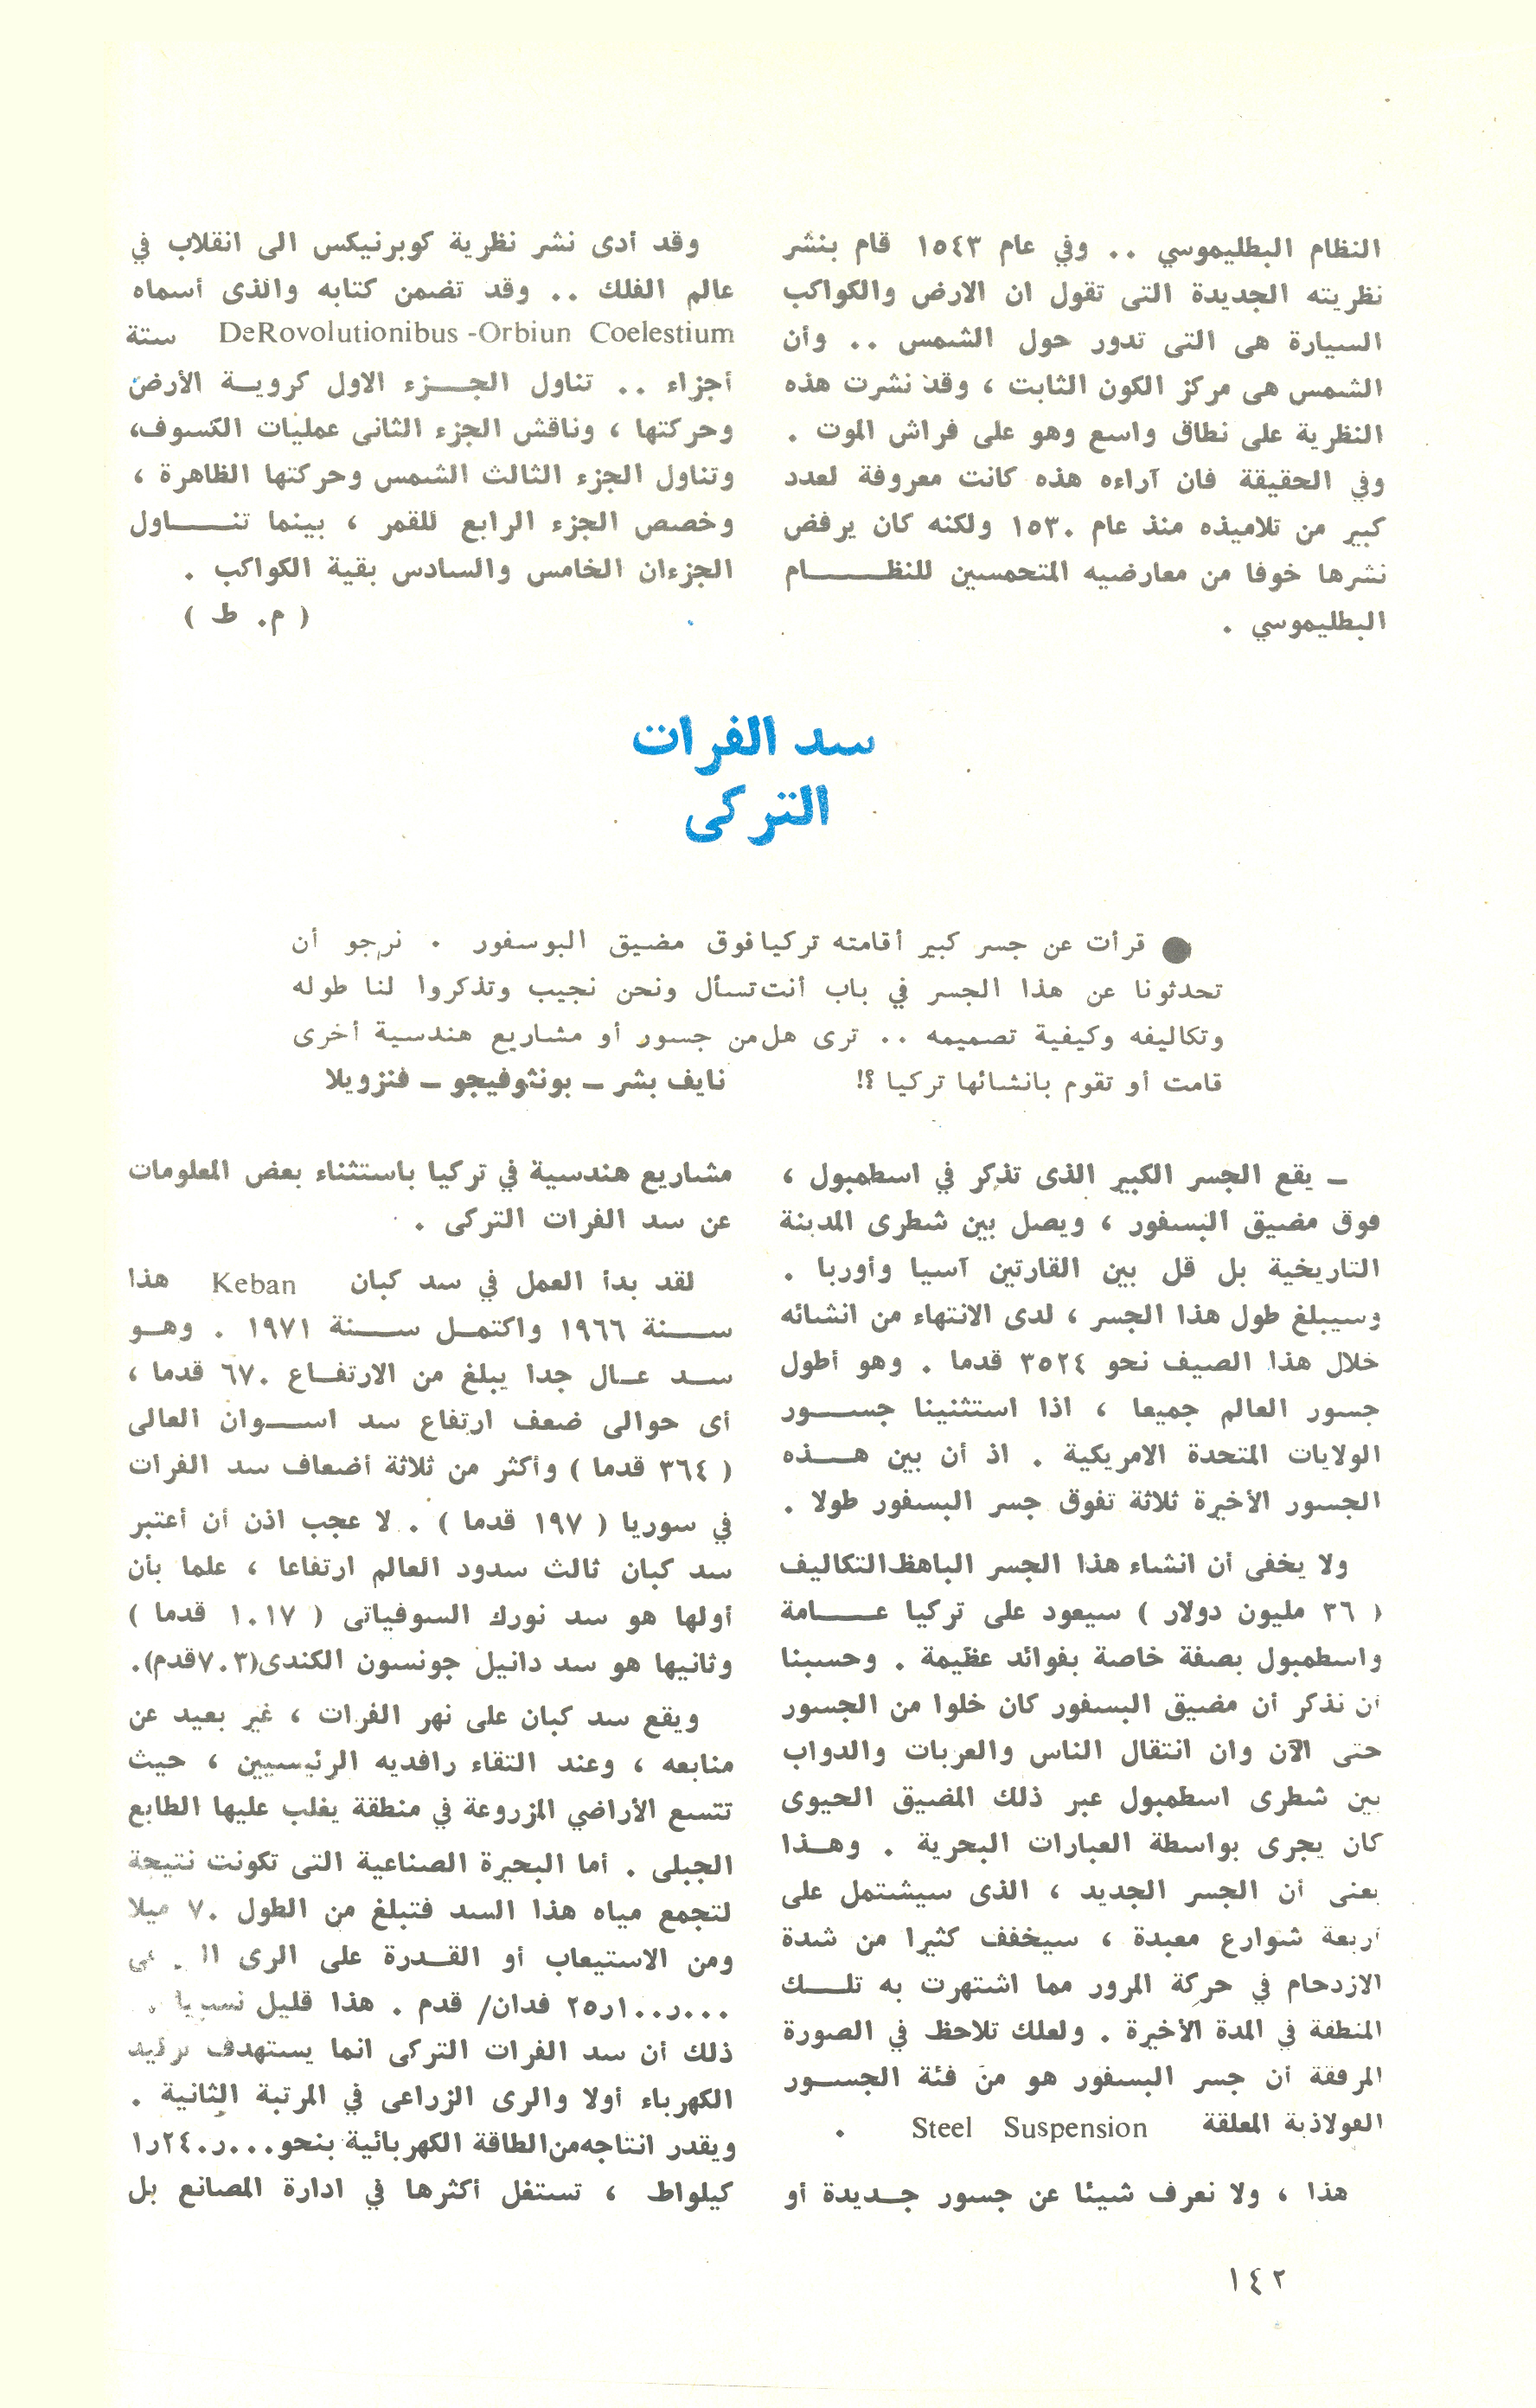 النظام البطليموسي .. وفي عام ١٥٤٣ قام بنشر
نظريته الجديدة التى تقول ان الارض والكواكب
السيارة هى التى تدور حول الشمس .. وأن
الشمس هى مركز الكون الثابت ، وقد نشرت هذه
النظرية على نطاق واسع وهو على فراش الموت .
وفي الحقيقة فان آراءه هذه كانت معروفة لعدد
كبير من تلاميذه منذ عام ١٥٣٠ ولكنه كان يرفض
نشرها خوفا من معارضيه المتحمسين للنظــــام
البطليموسي .
وقد أدى نشر نظرية كوبرنيكس الى انقلاب في
عالم الفلك .. وقد تضمن كتابه والذى أسماه
DeRovolutionibus -Orbiun Coelestium ستة
أجزاء .. تناول الجــزء الاول كرويــة الأرض
وحركتها ، وناقش الجزء الثانى عمليات الكسوف،
وتناول الجزء الثالث الشمس وحركتها الظاهرة ،
وخصص الجزء الرابع للقمر ، بينما تنــــاول
الجزءان الخامس والسادس بقية الكواكب .
( م. ط )
سد الفرات
التركى
● قرأت عن جسر كبير أقامته تركيا فوق مضيق البوسفور . نرجو أن
تحدثونا عن هذا الجسر في باب أنت تسأل ونحن نجيب وتذكروا لنا طوله
وتكاليفه وكيفية تصميمه .. ترى هل من جسور أو مشاريع هندسية أخرى
قامت أو تقوم بانشائها تركيا ؟!
نايف بشر ــ بونثوفيجو ــ فنزويلا
ــ يقع الجسر الكبير الذى تذكر في اسطمبول ،
فوق مضيق البسفور ، ويصل بين شطرى المدينة
التاريخية بل قل بين القارتين آسيا وأوربا .
وسيبلغ طول هذا الجسر ، لدى الانتهاء من انشائه
خلال هذا الصيف نحو ٣٥٢٤ قدما . وهو أطول
جسور العالم جميعا ، اذا استثنينا جســـور
الولايات المتحدة الامريكية . اذ أن بين هـــذه
الجسور الأخيرة ثلاثة تفوق جسر البسفور طولا .
ولا يخفى أن انشاء هذا الجسر الباهظ التكاليف
( ٣٦ مليون دولار ) سيعود على تركيا عــــامة
واسطمبول بصفة خاصة بفوائد عظيمة . وحسبنا
أن نذكر أن مضيق البسفور كان خلوا من الجسور
حتى الآن وان انتقال الناس والعربات والدواب
بين شطرى اسطمبول عبر ذلك المضيق الحيوى
كان يجرى بواسطة العبارات البحرية . وهــذا
يعنى أن الجسر الجديد ، الذى سيشتمل على
أربعة شوارع معبدة ، سيخفف كثيرا من شدة
الازدحام في حركة المرور مما اشتهرت به تلـــك
المنطقة في المدة الأخيرة . ولعلك تلاحظ في الصورة
المرفقة أن جسر البسفور هو من فئة الجســور
الفولاذية المعلقة Steel Suspension .
هذا ، ولا نعرف شيئا عن جسور جــديدة أو
مشاريع هندسية في تركيا باستثناء بعض المعلومات
عن سد الفرات التركى .
لقد بدأ العمل في سد كبان Keban هذا
ســـنة ١٩٦٦ واكتمــل ســـنة ١٩٧١ . وهــو
ســد عــال جدا يبلغ من الارتفــاع ٦٧٠ قدما ،
أى حوالى ضعف ارتفاع سد اســـوان العالى
( ٣٦٤ قدما ) وأكثر من ثلاثة أضعاف سد الفرات
في سوريا ( ١٩٧ قدما ) . لا عجب اذن أن أعتبر
سد كبان ثالث سدود العالم ارتفاعا ، علما بأن
أولها هو سد نورك السوفياتى ( ١٠١٧ قدما )
وثانيها هو سد دانيل جونسون الكندى(٧٠٣قدم).
ويقع سد كبان على نهر الفرات ، غير بعيد عن
منابعه ، وعند التقاء رافديه الرئيسيين ، حيث
تتسع الأراضي المزروعة في منطقة يغلب عليها الطابع
الجبلى . أما البحيرة الصناعية التى تكونت نتيجة
لتجمع مياه هذا السد فتبلغ من الطول ٧٠ ميلا
ومن الاستيعاب أو القــدرة على الرى
٢٥ر١٠٠ر٠٠٠ فدان/ قدم . هذا قليل نسبيا .
ذلك أن سد الفرات التركى انما يستهدف توليد
الكهرباء أولا والرى الزراعى في المرتبة الثانية .
ويقدر انتاجه من الطاقة الكهربائية بنحو ١ر٢٤٠ر٠٠٠
كيلواط ، تستغل أكثرها في ادارة المصانع بل
١٤٢